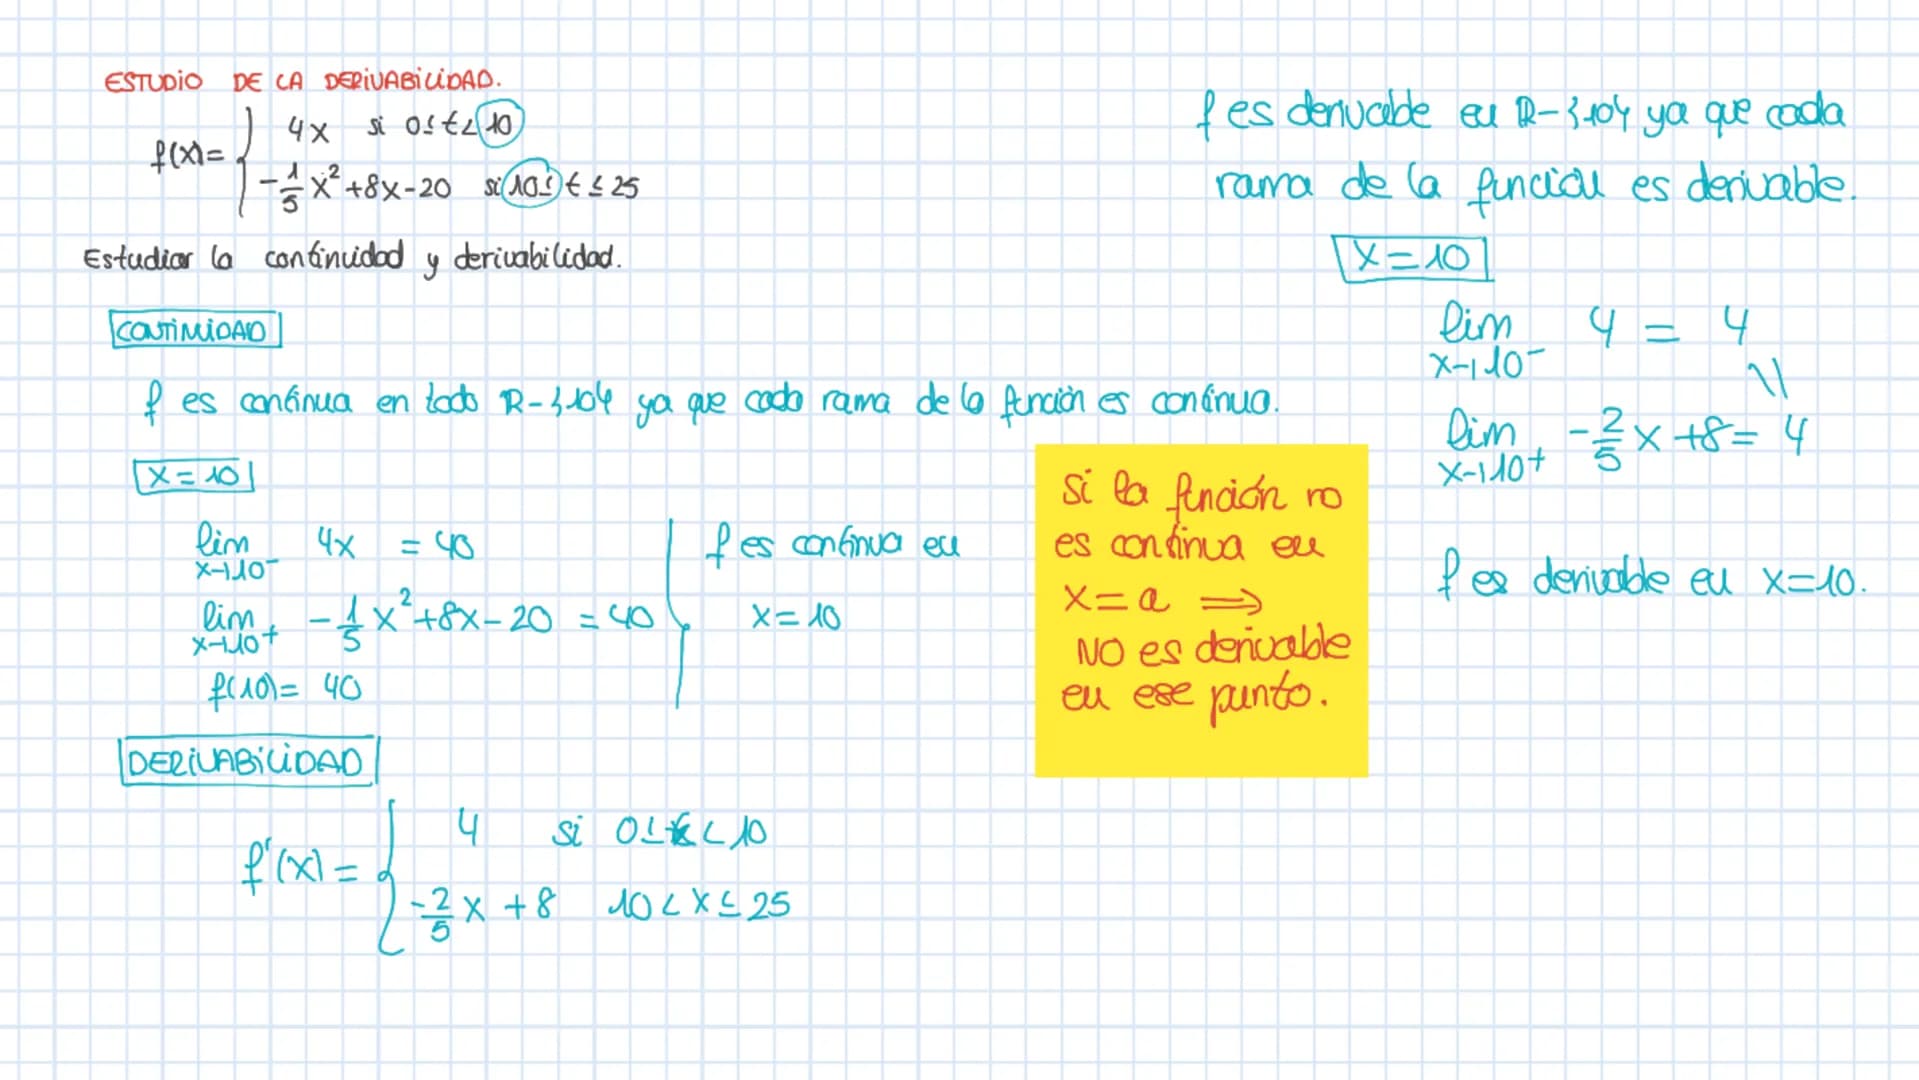 ESTUDIO DE LA DERIVABILIDAD.
f(x) = { 4x si 0≤t<10
-1/5 x² +8x-20 si 10≤t≤25
Estudiar la continuidad y derivabilidad.
CONTINUIDAD
f es continua en todo R-{10} ya que cada rama de la función es continua.
x=10
lim x→10⁻ 4x = 40
lim x→10⁺ -1/5 x²+8x-20 = 40
f(10)= 40
f es continua en
x=10
DERIVABILIDAD
f'(x) = { 4 si 0≤x<10
-2/5 x +8 10<x≤25
Si la función no
es continua en
x=a ⟹
NO es derivable
en ese punto.
f es derivable en R-{10} ya que cada
rama de la función es derivable.
x=10
lim x→10⁻ 4 = 4
\\
lim x→10⁺ -2/5 x +8= 4
f es derivable en x=10.